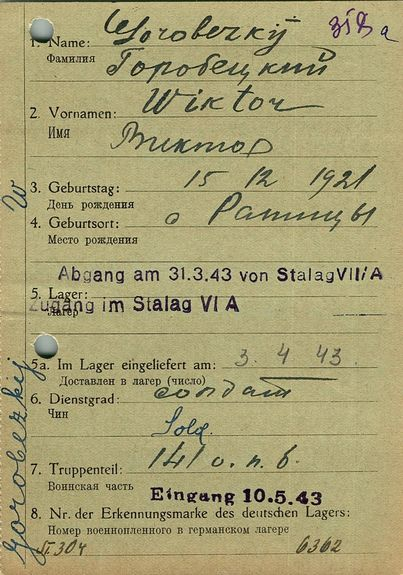 318 a
1. Name: Gorobezkij
Фамилия Горобецкий
2. Vornamen: Wiktor
Имя Виктор
3. Geburtstag: 15 12 1921
День рождения
4. Geburtsort: с Ратицы
Место рождения
Abgang am 31.3.43 von Stalag VII/A
5. Lager:
Zugang im Stalag VI A
Лагерь
5a. Im Lager eingeliefert am: 3. 4 43.
Доставлен в лагерь (число)
6. Dienstgrad: солдат
Чин
Sold.
7. Truppenteil: 141
Воинская часть
Eingang 10.5.43
8. Nr. der Erkennungsmarke des deutschen Lagers:
Номер военнопленного в германском лагере
304 6362
Gorobezkij W